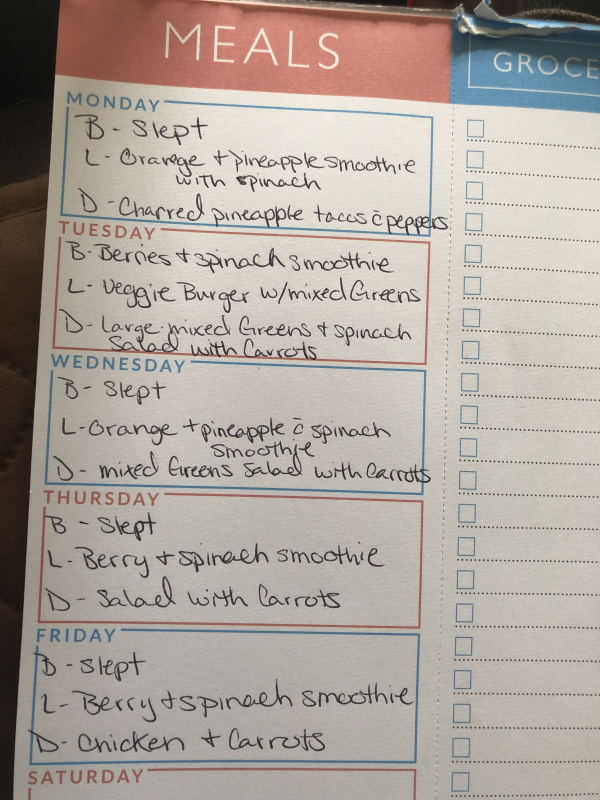 MEALS
GROCE
MONDAY
B - Slept
L - Orange + pineapple smoothie
with spinach
D - Charred pineapple tacos c̄ peppers
TUESDAY
B - Berries + spinach smoothie
L - Veggie Burger w/mixed Greens
D - Large mixed Greens + spinach
Salad with Carrots
WEDNESDAY
B - Slept
L - Orange + pineapple c̄ spinach
smoothie
D - mixed Greens Salad with Carrots
THURSDAY
B - Slept
L - Berry + spinach smoothie
D - Salad with Carrots
FRIDAY
B - Slept
L - Berry + spinach smoothie
D - Chicken + Carrots
SATURDAY